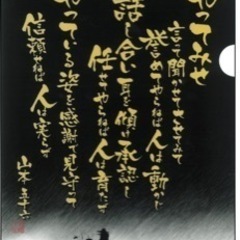 やってみせ
言って聞かせてさせてみて
誉めてやらねば人は動かじ
話し合い耳を傾け承認し
任せてやらねば人は育たず
やっている姿を感謝で見守って
信頼せねば人は実らず
山本五十六